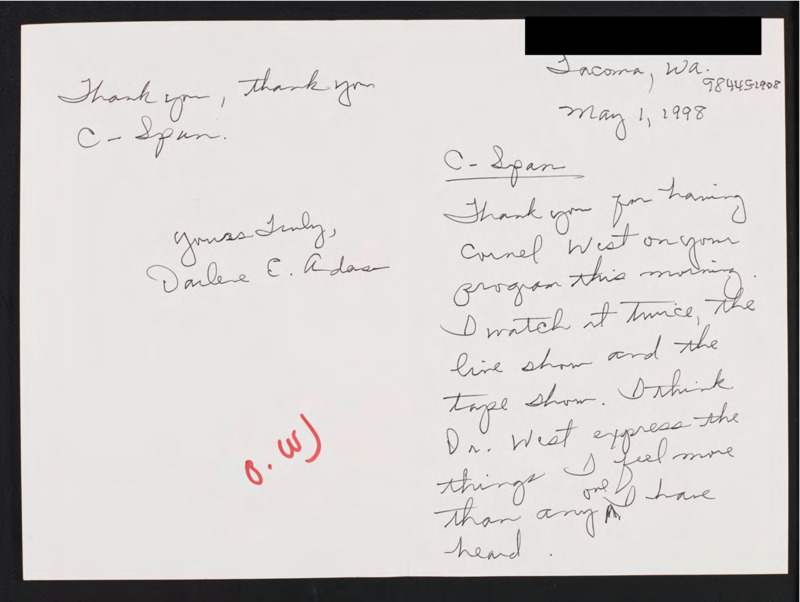 Tacoma, Wa.
984451908
May 1, 1998
C-Span
Thank you for having
Cornel West on your
program this morning.
I watch it twice, the
live show and the
tape show. I think
Dr. West express the
things I feel more
than any one I have
heard.
Thank you, thank you
C-Span.
yours Truly,
Darlene E.